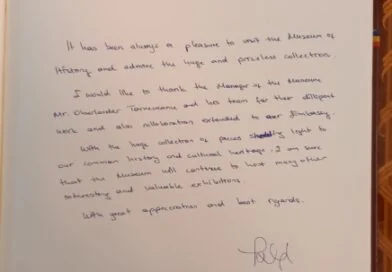 It has been always a pleasure to visit the Museum of
History and admire the huge and priceless collections.
I would like to thank the Manager of the Museum
Mr. Oberlander Tarnoveanu and his team for their diligent
work and also collaboration extended to our Embassy.
With the huge collection of pieces shedding light to
our common history and cultural heritage. I am sure
that the Museum will continue to host many other
interesting and valuable exhibitions.
With great appreciation and best regards.